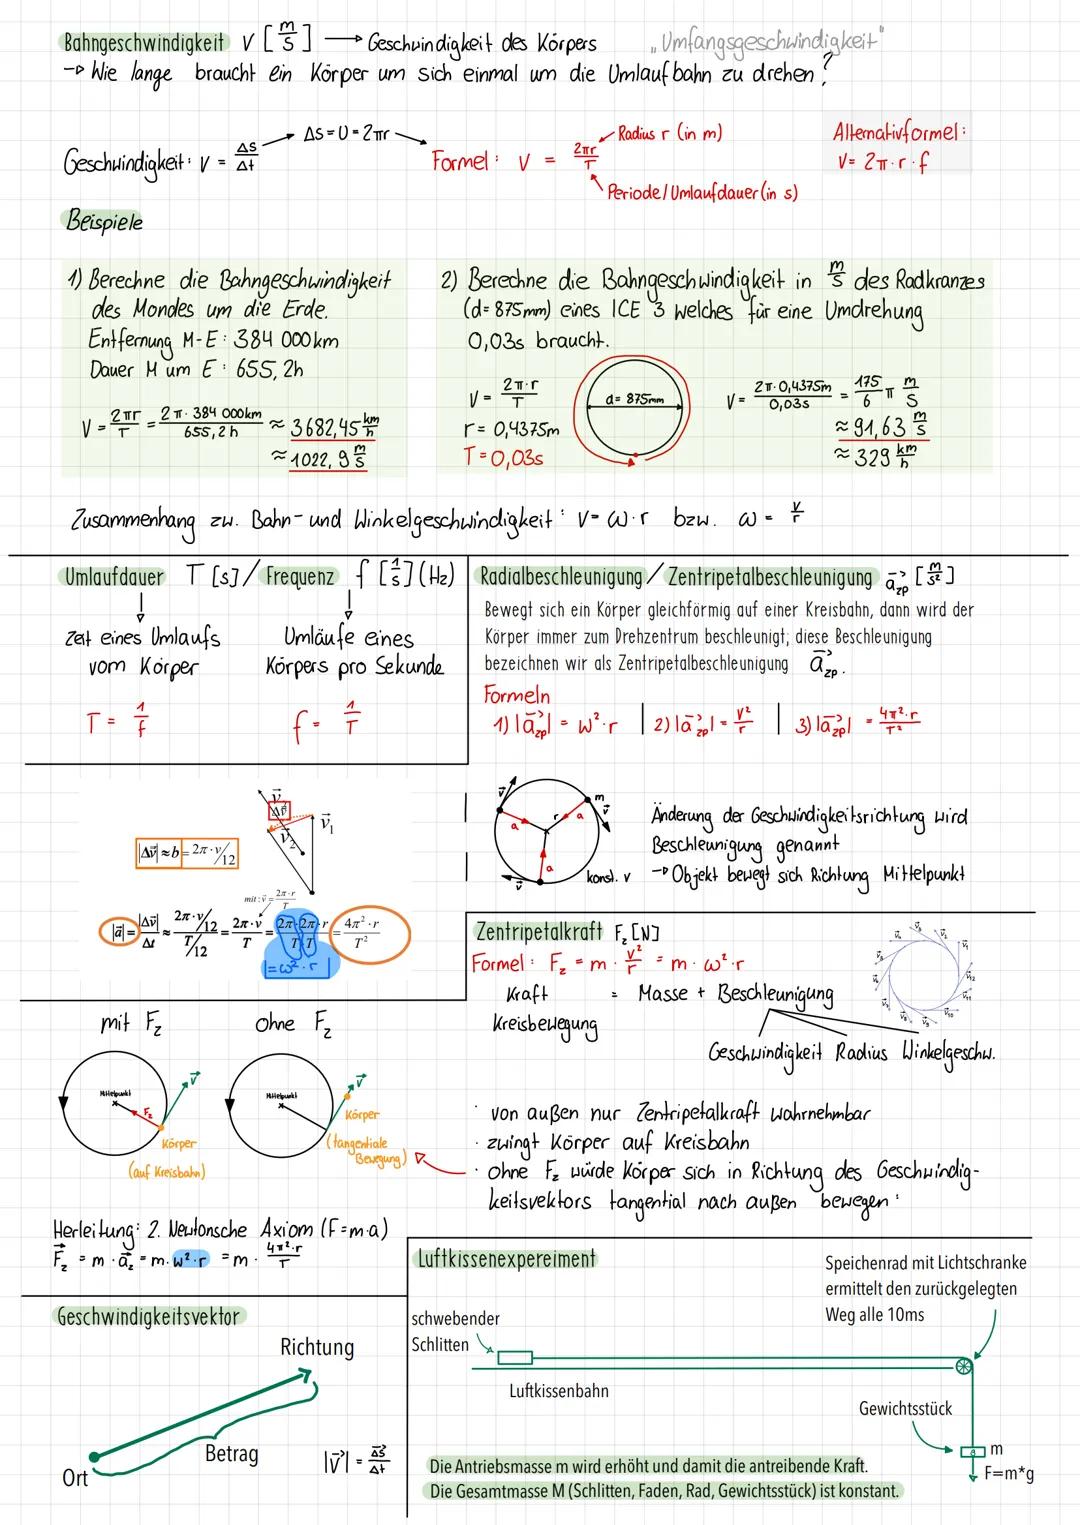 Bahngeschwindigkeit v [m/s] → Geschwindigkeit des Körpers „Umfangsgeschwindigkeit"
→ Wie lange braucht ein Körper um sich einmal um die Umlaufbahn zu drehen?
Geschwindigkeit: v = Δs/Δt → Δs = U = 2πr → Formel: v = 2πr/T
Radius r (in m)
Periode/Umlaufdauer (in s)
Alternativformel:
v = 2π·r·f
Beispiele
1) Berechne die Bahngeschwindigkeit
des Mondes um die Erde.
Entfernung M-E: 384 000km
Dauer M um E: 655,2h
v = 2πr/T = 2π·384 000km/655,2h ≈ 3682,45 km/h
≈ 1022,9 m/s
2) Berechne die Bahngeschwindigkeit in m/s des Radkranzes
(d=875mm) eines ICE 3 welches für eine Umdrehung
0,03s braucht.
v = 2π·r/T
r = 0,4375m
T = 0,03s
d = 875mm
v = 2π·0,4375m/0,03s = 175/6 π m/s
≈ 91,63 m/s
≈ 329 km/h
Zusammenhang zw. Bahn- und Winkelgeschwindigkeit: v = ω·r bzw. ω = v/r
Umlaufdauer T [s] / Frequenz f [1/s] (Hz)
Zeit eines Umlaufs
vom Körper
Umläufe eines
Körpers pro Sekunde
T = 1/f
f = 1/T
Radialbeschleunigung / Zentripetalbeschleunigung a⃗zp [m/s²]
Bewegt sich ein Körper gleichförmig auf einer Kreisbahn, dann wird der
Körper immer zum Drehzentrum beschleunigt; diese Beschleunigung
bezeichnen wir als Zentripetalbeschleunigung a⃗zp.
Formeln
1) |a⃗zp| = w²·r | 2) |a⃗zp| = v²/r | 3) |a⃗zp| = 4π²·r/T²
v⃗
Δv⃗
v⃗2
v⃗1
|Δv⃗| ≈ b = 2π·v/12
mit: v⃗ = 2π·r/T
|a⃗| = |Δv⃗|/Δt ≈ (2π·v/12)/(T/12) = 2π·v/T = 2π·2π·r/T·T = 4π²·r/T²
= ω²·r
v⃗
m
v⃗
a
r
a
a
v⃗
konst. v
Änderung der Geschwindigkeitsrichtung wird
Beschleunigung genannt
→ Objekt bewegt sich Richtung Mittelpunkt
Zentripetalkraft Fz [N]
Formel: Fz = m · v²/r = m · ω²·r
Kraft = Masse + Beschleunigung
Kreisbewegung
Geschwindigkeit Radius Winkelgeschw.
mit Fz
ohne Fz
Mittelpunkt
Fz
v⃗
Körper
(auf Kreisbahn)
Mittelpunkt
v⃗
Körper
(tangentiale
Bewegung)
· von außen nur Zentripetalkraft wahrnehmbar
· zwingt Körper auf Kreisbahn
· ohne Fz würde Körper sich in Richtung des Geschwindig-
keitsvektors tangential nach außen bewegen
Herleitung: 2. Newtonsche Axiom (F=m·a)
F⃗z = m · a⃗z = m · w²·r = m · 4π²·r/T
Geschwindigkeitsvektor
Richtung
Betrag
Ort
|v⃗| = Δs⃗/Δt
Luftkissenexpereiment
Speichenrad mit Lichtschranke
ermittelt den zurückgelegten
Weg alle 10ms
schwebender
Schlitten
Luftkissenbahn
Gewichtsstück
m
F=m*g
Die Antriebsmasse m wird erhöht und damit die antreibende Kraft.
Die Gesamtmasse M (Schlitten, Faden, Rad, Gewichtsstück) ist konstant.